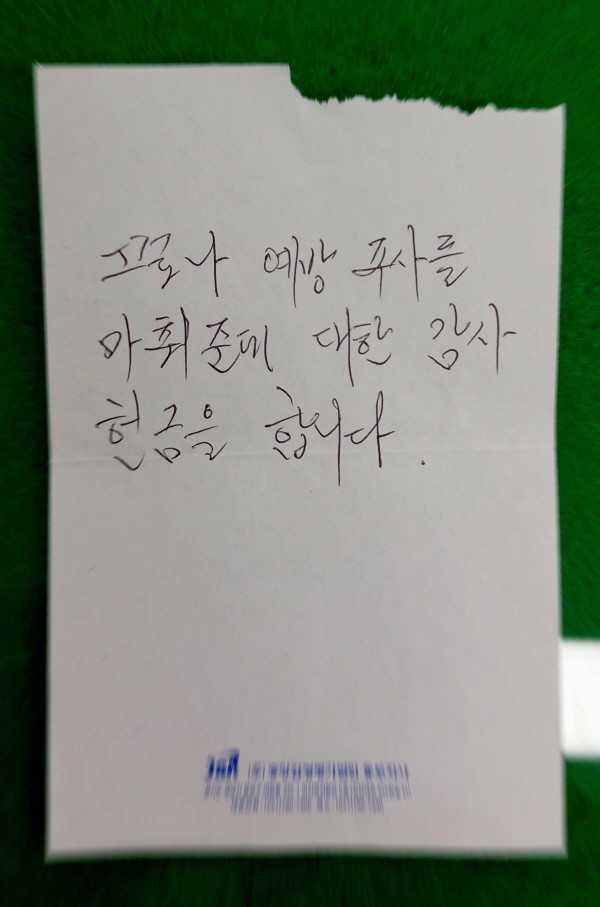 코로나 예방 주사를
마취준데 대한 감사
헌금을 합니다.